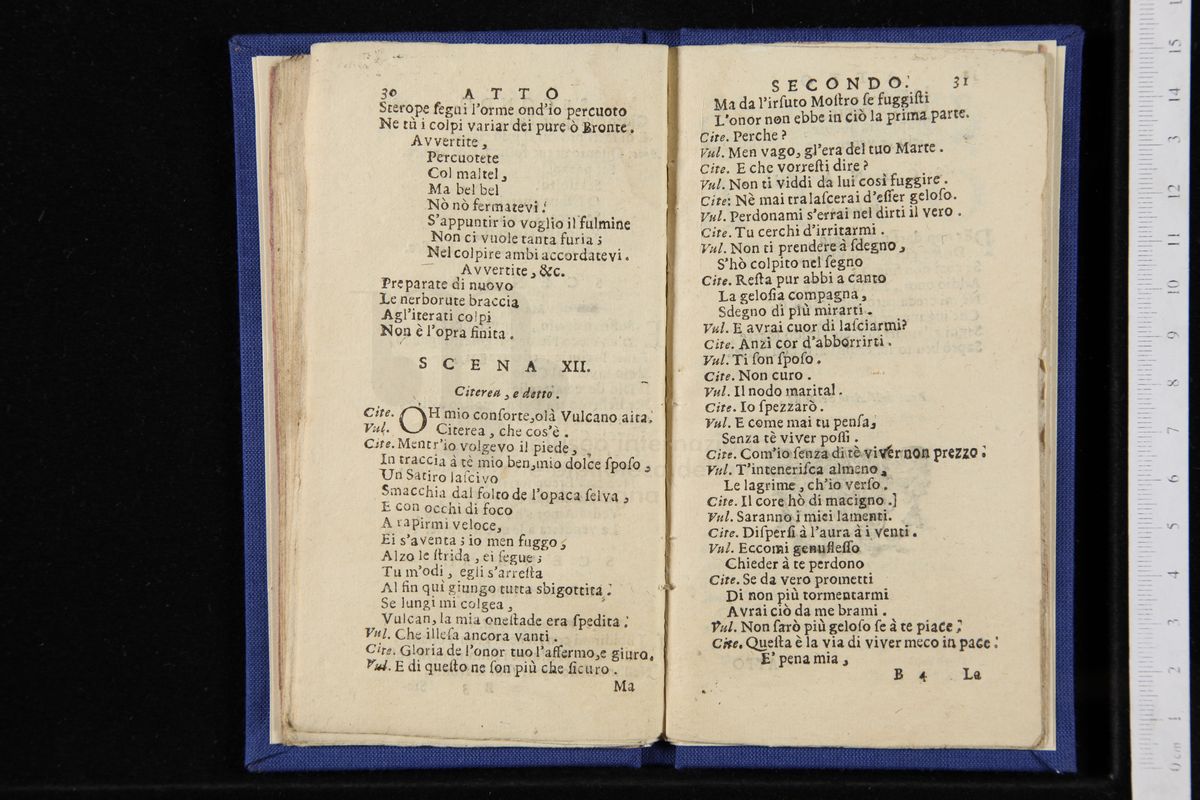 30 ATTO
Sterope ſegui l'orme ond'io percuoto
Ne tù i colpi variar dei pure ò Bronte.
Avvertite,
Percuotete
Col maltel,
Ma bel bel
Nò nò fermatevi:
S'appuntir io voglio il fulmine
Non ci vuole tanta furia;
Nel colpire ambi accordatevi.
Avvertite, &c.
Preparate di nuovo
Le nerborute braccia
Agl'iterati colpi
Non è l'opra finita.
SCENA XII.
Citerea, e detto.
Cite. OH mio conſorte, olà Vulcano aita.
Vul. Citerea, che cos'è.
Cite. Mentr'io volgevo il piede,
In traccia à tè mio ben, mio dolce ſpoſo,
Un Satiro laſcivo
Smacchia dal folto de l'opaca ſelva,
E con occhi di foco
A rapirmi veloce,
Ei s'aventa; io men fuggo,
Alzo le ſtrida, ei ſegue;
Tu m'odi, egli s'arreſta
Al fin quì giungo tutta sbigottita:
Se lungi mi colgea,
Vulcan, la mia oneſtade era ſpedita.
Vul. Che illeſa ancora vanti.
Cite. Gloria de l'onor tuo l'affermo, e giuro.
Vul. E di queſto ne ſon più che ſicuro.
Ma
SECONDO. 31
Ma da l'irſuto Moſtro ſe fuggiſti
L'onor non ebbe in ciò la prima parte.
Cite. Perche?
Vul. Men vago, gl'era del tuo Marte.
Cite. E che vorreſti dire?
Vul. Non ti viddi da lui così fuggire.
Cite: Nè mai tralaſcerai d'eſſer geloſo.
Vul. Perdonami s'errai nel dirti il vero.
Cite. Tu cerchi d'irritarmi.
Vul. Non ti prendere à ſdegno,
S'hò colpito nel ſegno
Cite. Reſta pur abbi a canto
La geloſia compagna,
Sdegno di più mirarti.
Vul. E avrai cuor di laſciarmi?
Cite. Anzi cor d'abborrirti.
Vul. Ti ſon ſpoſo.
Cite. Non curo.
Vul. Il nodo marital.
Cite. Io ſpezzarò.
Vul. E come mai tu penſa,
Senza tè viver poſſi.
Cite. Com'io ſenza di tè viver non prezzo:
Vul. T'inteneriſca almeno,
Le lagrime, ch'io verſo.
Cite. Il core hò di macigno.]
Vul. Saranno i miei lamenti.
Cite. Diſperſi à l'aura à i venti.
Vul. Eccomi genufleſſo
Chieder à te perdono
Cite. Se da vero prometti
Di non più tormentarmi
Avrai ciò da me brami.
Vul. Non ſarò più geloſo ſe à te piace;
Cite. Queſta è la via di viver meco in pace:
E' pena mia,
B 4 La